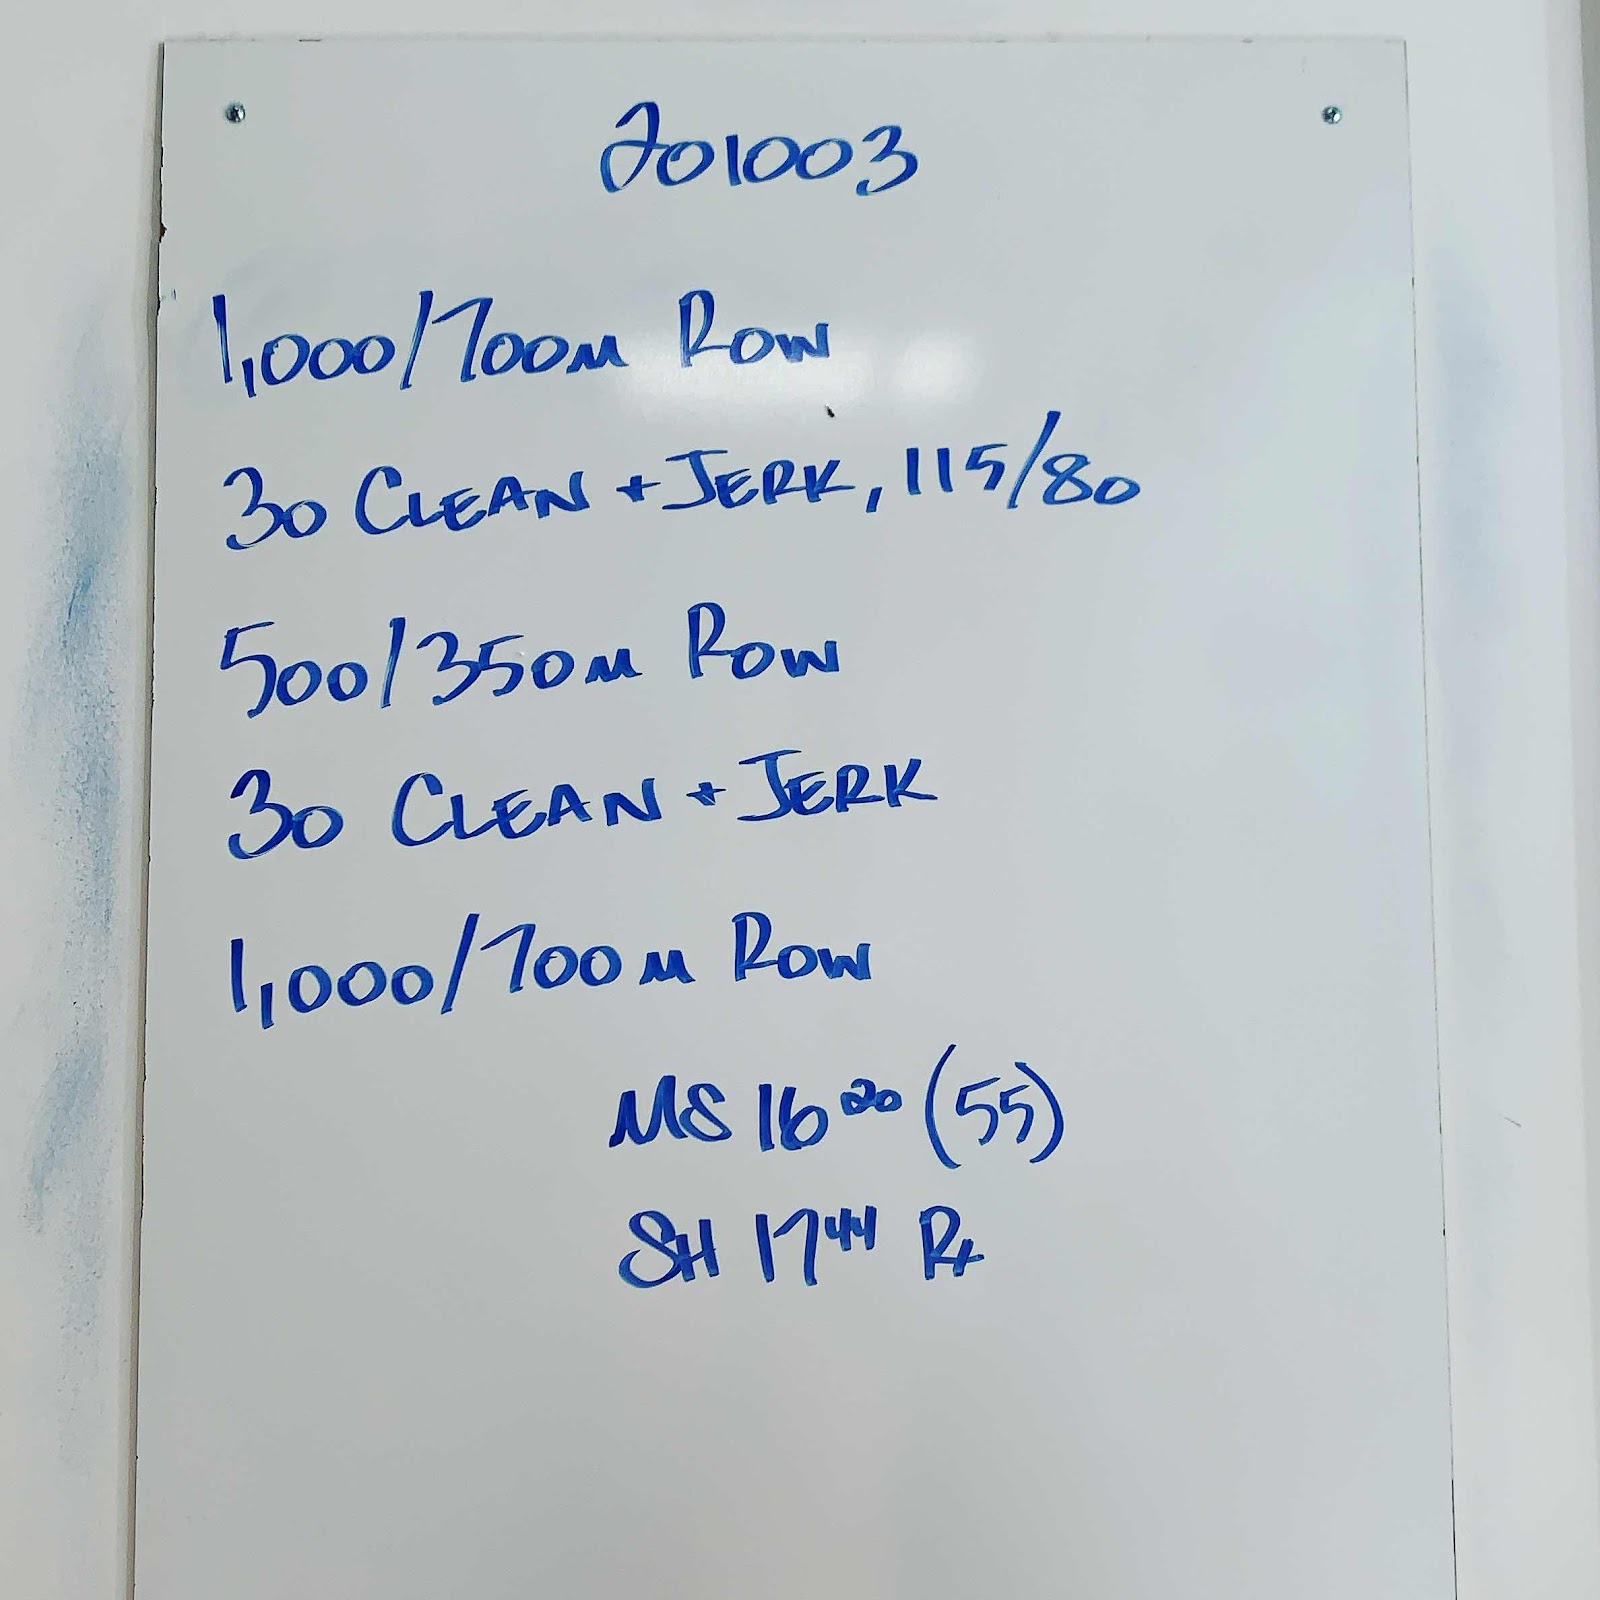 201003
1,000/700m Row
30 Clean + Jerk, 115/80
500/350m Row
30 Clean + Jerk
1,000/700m Row
MS 16 20 (55)
SH 17 44 Rx